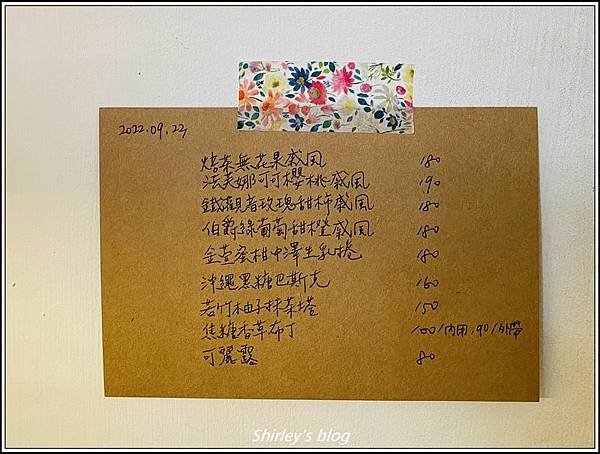 2022.09.22
焙茶無花果戚風 180
法芙娜可可櫻桃戚風 190
鐵觀音玫瑰甜柿戚風 180
伯爵綠葡萄甜橙戚風 180
金萱蜜柑中澤生乳捲 180
沖繩黑糖巴斯克 160
若竹柚子抹茶塔 150
焦糖香草布丁 100/內用,90/外帶
可麗露 80
Shirley's blog